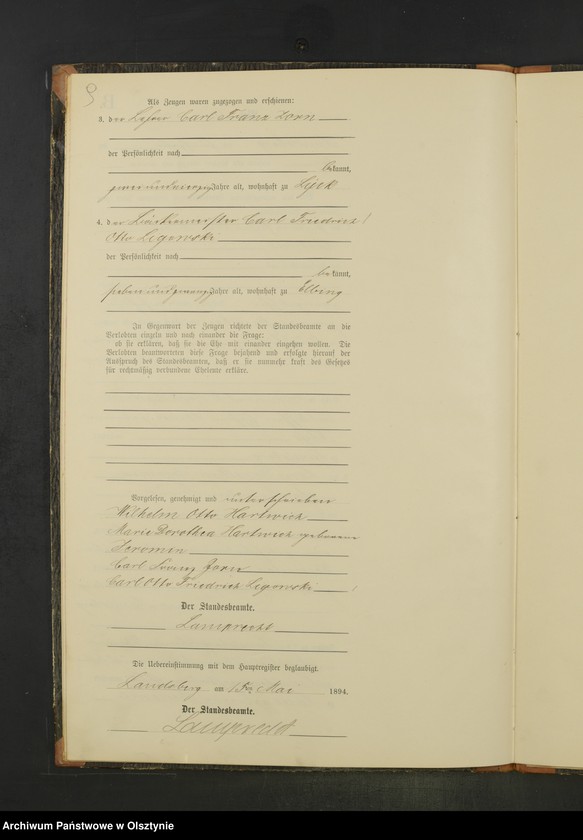 Als Zeugen waren zugezogen und erschienen:
3. der Lehrer Carl Franz Zorn
der Persönlichkeit nach
bekannt,
Jahre alt, wohnhaft zu Lyck
4. der Carl Friedrich
Otto Legowski
der Persönlichkeit nach
bekannt,
siebenundzwanzig Jahre alt, wohnhaft zu Elbing
In Gegenwart der Zeugen richtete der Standesbeamte an die
Verlobten einzeln und nach einander die Frage:
ob sie erklären, daß sie die Ehe mit einander eingehen wollen. Die
Verlobten beantworteten diese Frage bejahend und erfolgte hierauf der
Ausspruch des Standesbeamten, daß er sie nunmehr kraft des Gesetzes
für rechtmäßig verbundene Eheleute erkläre.
Vorgelesen, genehmigt und unterschrieben
Wilhelm Otto Hartwich
Marie Dorothea Hartwich geborene
Jeromin
Carl Franz Zorn
Carl Otto Friedrich Legowski
Der Standesbeamte.
Lamprecht
Die Uebereinstimmung mit dem Hauptregister beglaubigt.
Landsberg am Mai 1894.
Der Standesbeamte.
Lamprecht
Archiwum Państwowe w Olsztynie